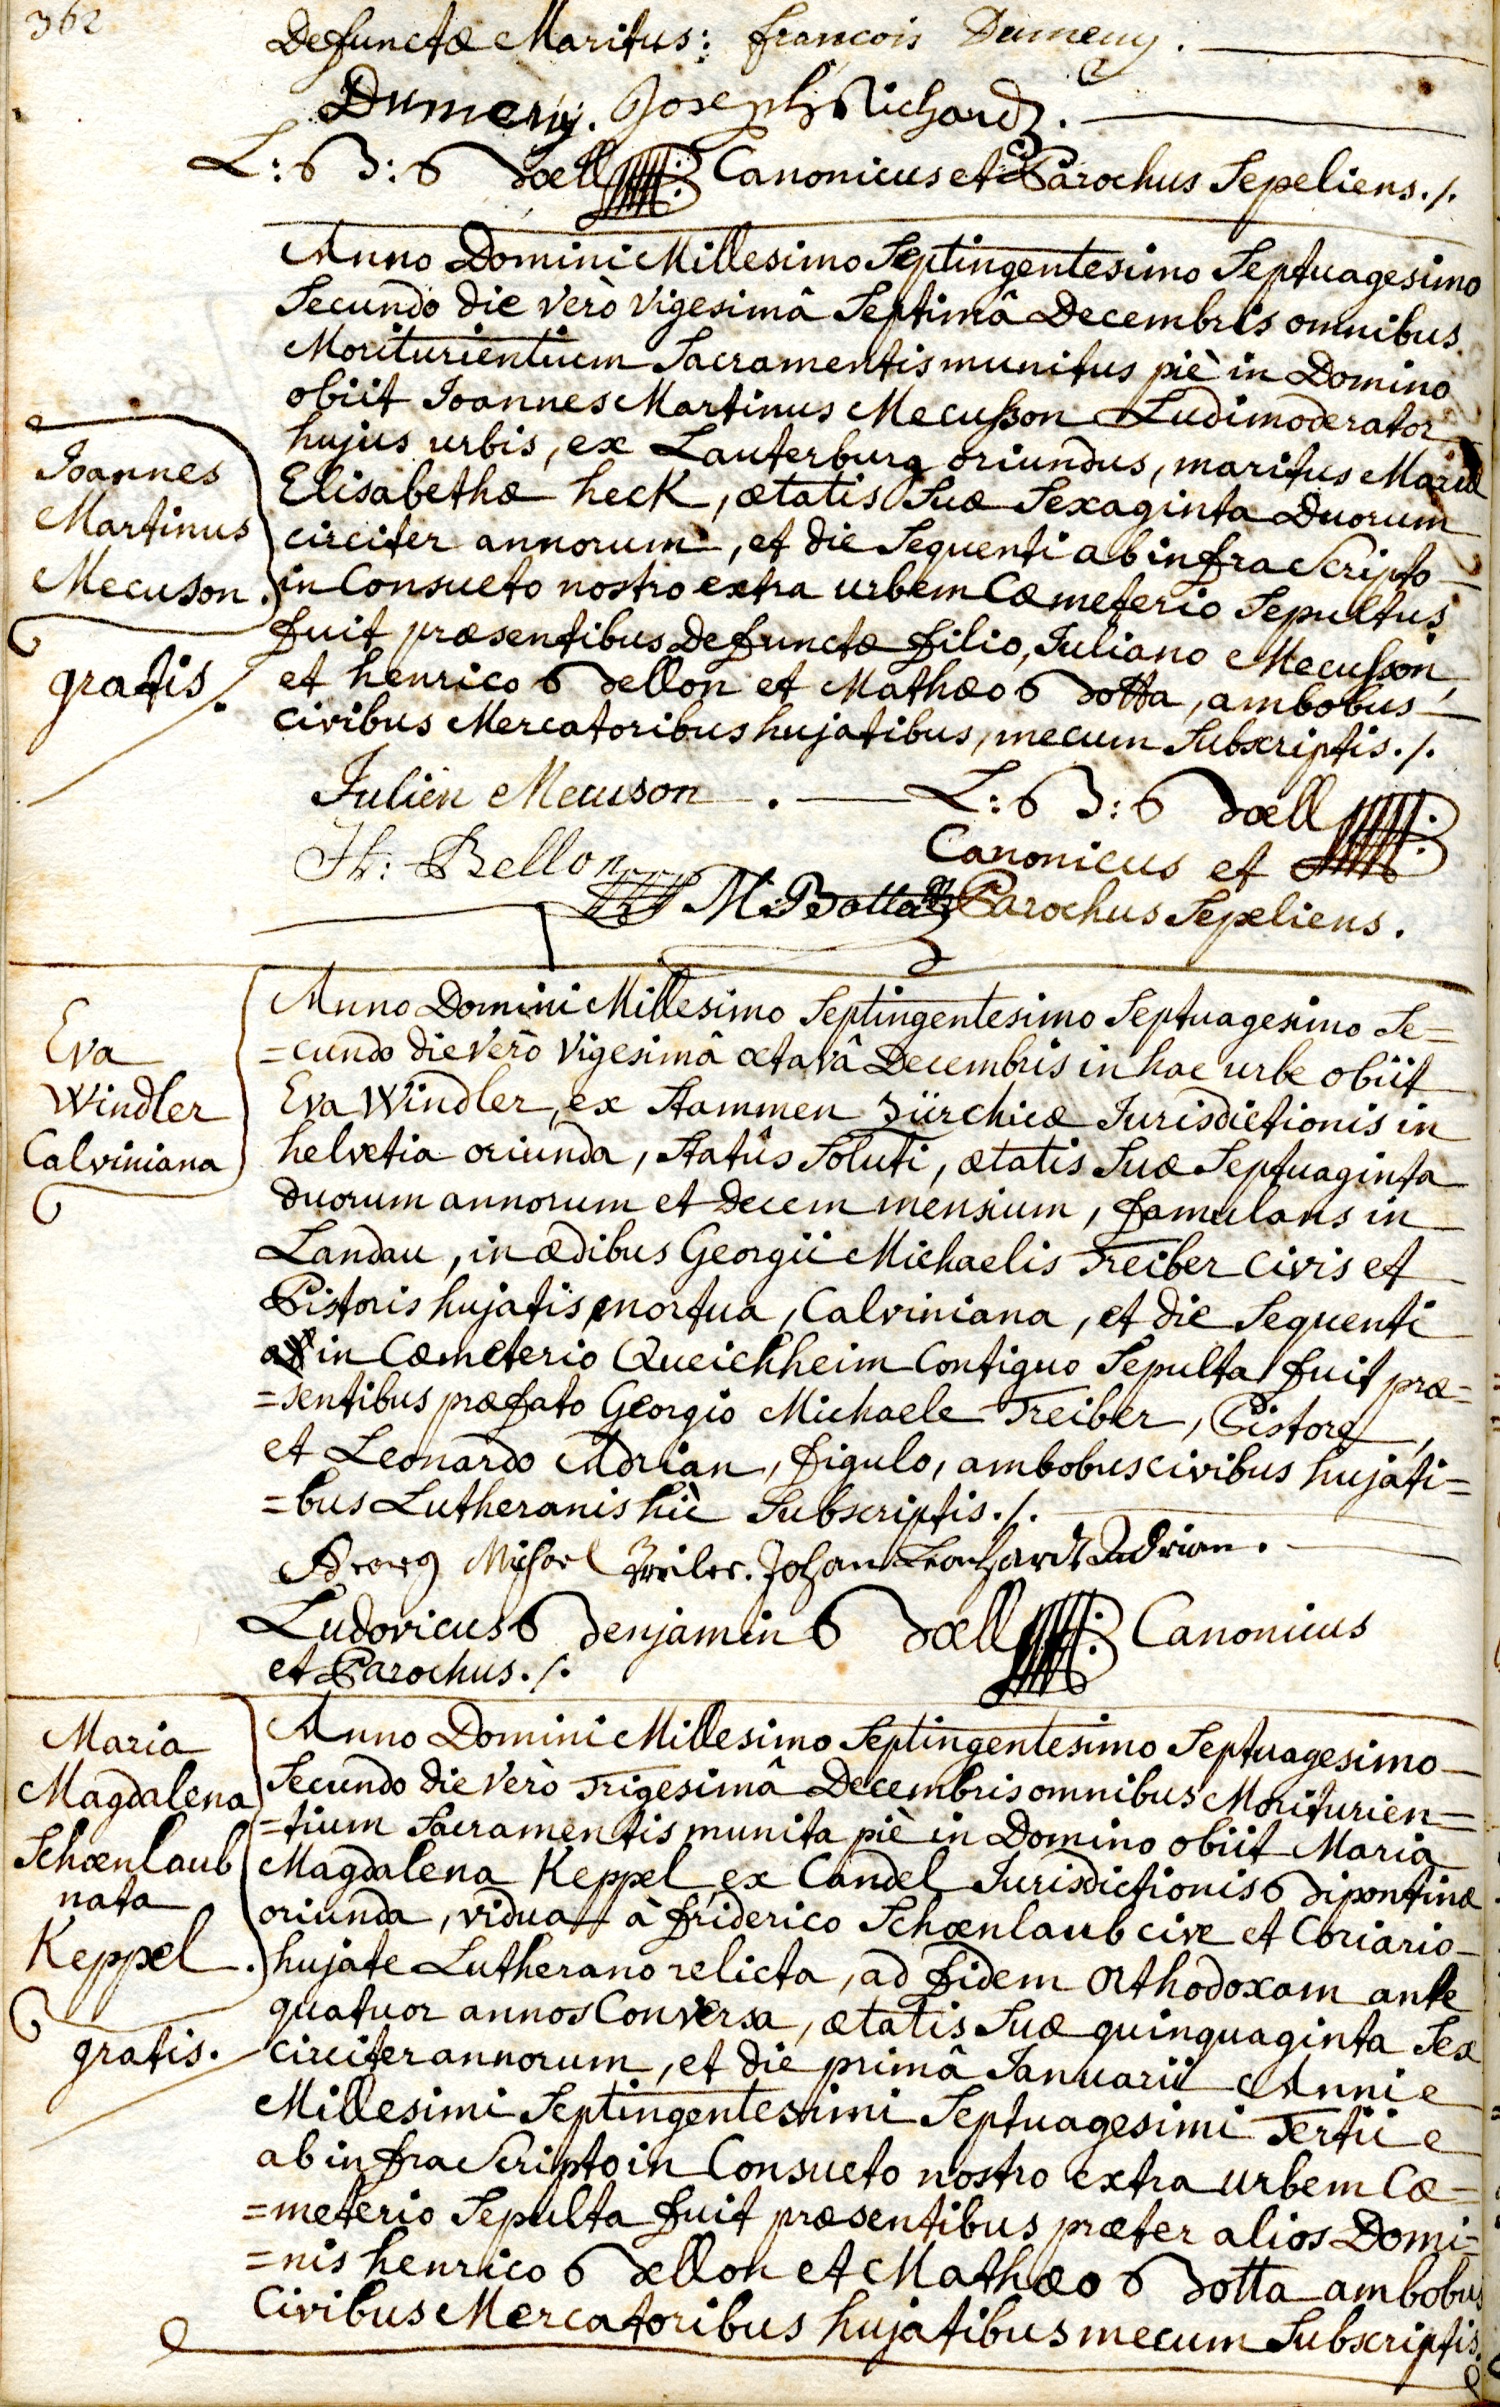 362
Defunctæ Maritus: francois Dumeny.
Dumeny. Joseph Richard.
L: B: Boell Canonicus et Parochus Sepeliens./.
Anno Domini Millesimo Septingentesimo Septuagesimo
Secundo die verò vigesimâ Septimâ Decembris omnibus
Moriturientium Sacramentis munitus piè in Domino
obiit Joannes Martinus Mecusson Ludimoderator
hujus urbis, ex Lauterburg oriundus, maritus Mariæ
Elisabethæ heck, ætatis Suæ Sexaginta Duorum
circiter annorum, et die Sequenti ab infra Scripto
in Consueto nostro extra urbem Cœmeterio Sepultus
fuit præsentibus Defunctæ filio, Juliano Mecusson,
et henrico Bellon et Mathæo Botta, ambobus
civibus Mercatoribus hujatibus, mecum Subscriptis./.
Joannes
Martinus
Mecuson.
gratis/.
Julien Mecuson.
H: Bellon
M. Botta
L: B: Boell
Canonicus et
Parochus Sepeliens.
Eva
Windler
Calviniana
Anno Domini Millesimo Septingentesimo Septuagesimo Se=
=cundo die verò vigesimâ octavâ Decembris in hac urbe obiit
Eva Windler, ex Stammen Zürchicæ Jurisdictionis in
helvetia oriunda, Statûs Soluti, ætatis Suæ Septuaginta
duorum annorum et decem mensium, famulans in
Landau, in ædibus Georgii Michaelis Treiber civis et
Pistoris hujatis mortua, Calviniana, et die Sequenti
in Cœmeterio Queichheim Contiguo Sepulta fuit præ=
=sentibus præfato Georgio Michaele Treiber, Pistore,
et Leonardo Adrian, figulo, ambobus civibus hujati=
=bus Lutheranis hìc Subscriptis./.
Georg Michael Treiber. Johan Leonhardt Adrian.
Ludovicus Benjamin Boell Canonicus
et Parochus./.
Maria
Magdalena
Schœnlaub
nata
Keppel.
gratis.
Anno Domini Millesimo Septingentesimo Septuagesimo
Secundo die verò Trigesimâ Decembris omnibus Moriturien=
=tium Sacramentis munita piè in Domino obiit Maria
Magdalena Keppel, ex Candel Jurisdictionis Bipontinæ
oriunda, vidua à friderico Schœnlaub cive et Coriario
hujate Lutherano relicta, ad fidem Orthodoxam ante
quatuor annos Conversa, ætatis Suæ quinquaginta Sex
circiter annorum, et die primâ Januarii Anni
Millesimi Septingentesimi Septuagesimi Tertii
ab infra Scripto in Consueto nostro extra urbem Cœ=
=meterio Sepulta fuit præsentibus præter alios Domi=
=nis henrico Bellon et Mathæo Botta ambobus
Civibus Mercatoribus hujatibus mecum Subscriptis.